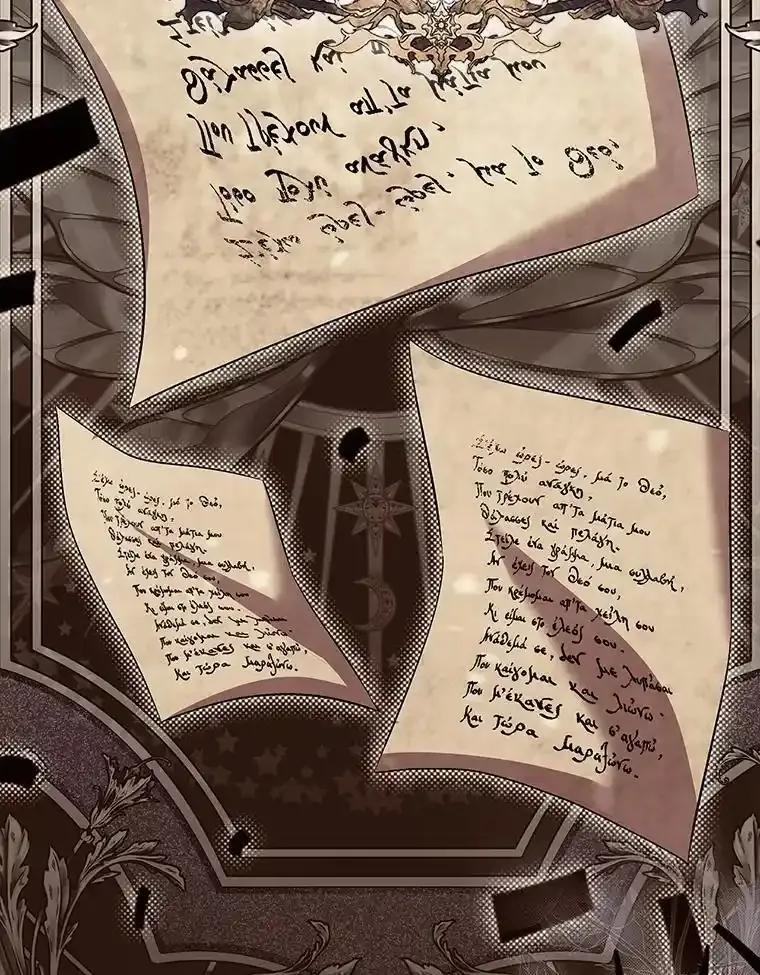 Θάλασσες και
Που τρέχουν απ'τα μάτια μου
Τόσο πολύ ανάγκη,
Σ'έχω ώρες - ώρες - μα το Θεό,
Σ'έχω ώρες - ώρες, μά το Θεό,
Τόσο πολύ ανάγκη,
Που τρέχουν απ'τα μάτια μου
Θάλασσες και πελάγη.
Στείλε ένα γράμμα, μια συλλαβή,
Αν έχεις τον Θεό σου,
Που κρέμομαι απ'τα χείλη σου
Κι είμαι στο έλεός σου.
Ανάθεμά σε, δεν με λυπάσαι
Που καίγομαι και λιώνω.
Που μ'έκανες και σ'αγαπώ,
Και τώρα μαραζώνω.
Σ'έχω ώρες - ώρες, μά το Θεό,
Τόσο πολύ ανάγκη,
Που τρέχουν απ'τα μάτια μου
Θάλασσες και πελάγη.
Στείλε ένα γράμμα, μια συλλαβή,
Αν έχεις τον Θεό σου,
Που κρέμομαι απ'τα χείλη σου
Κι είμαι στο έλεός σου.
Ανάθεμά σε, δεν με λυπάσαι
Που καίγομαι και λιώνω.
Που μ'έκανες και σ'αγαπώ,
Και τώρα μαραζώνω.